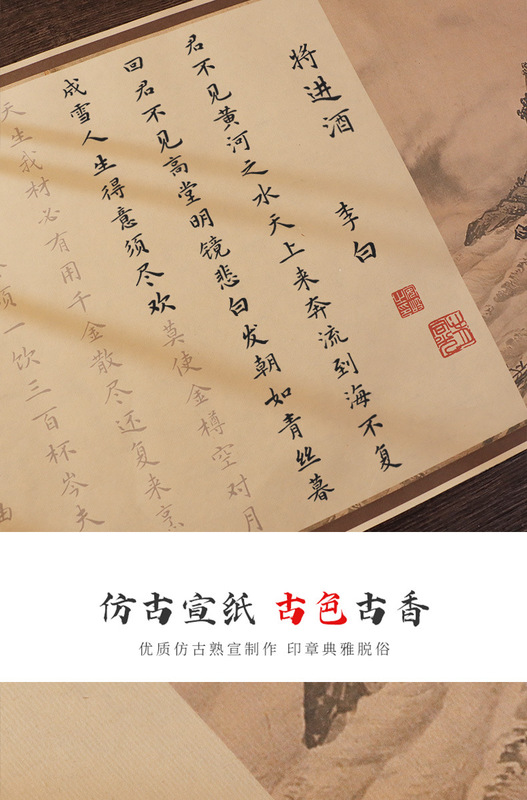 将进酒 李白
君不见黄河之水天上来奔流到海不复
回君不见高堂明镜悲白发朝如青丝暮
成雪人生得意须尽欢莫使金樽空对月
天生我材必有用千金散尽还复来烹
须一饮三百杯岑夫
仿古宣纸 古色古香
优质仿古熟宣制作 印章典雅脱俗